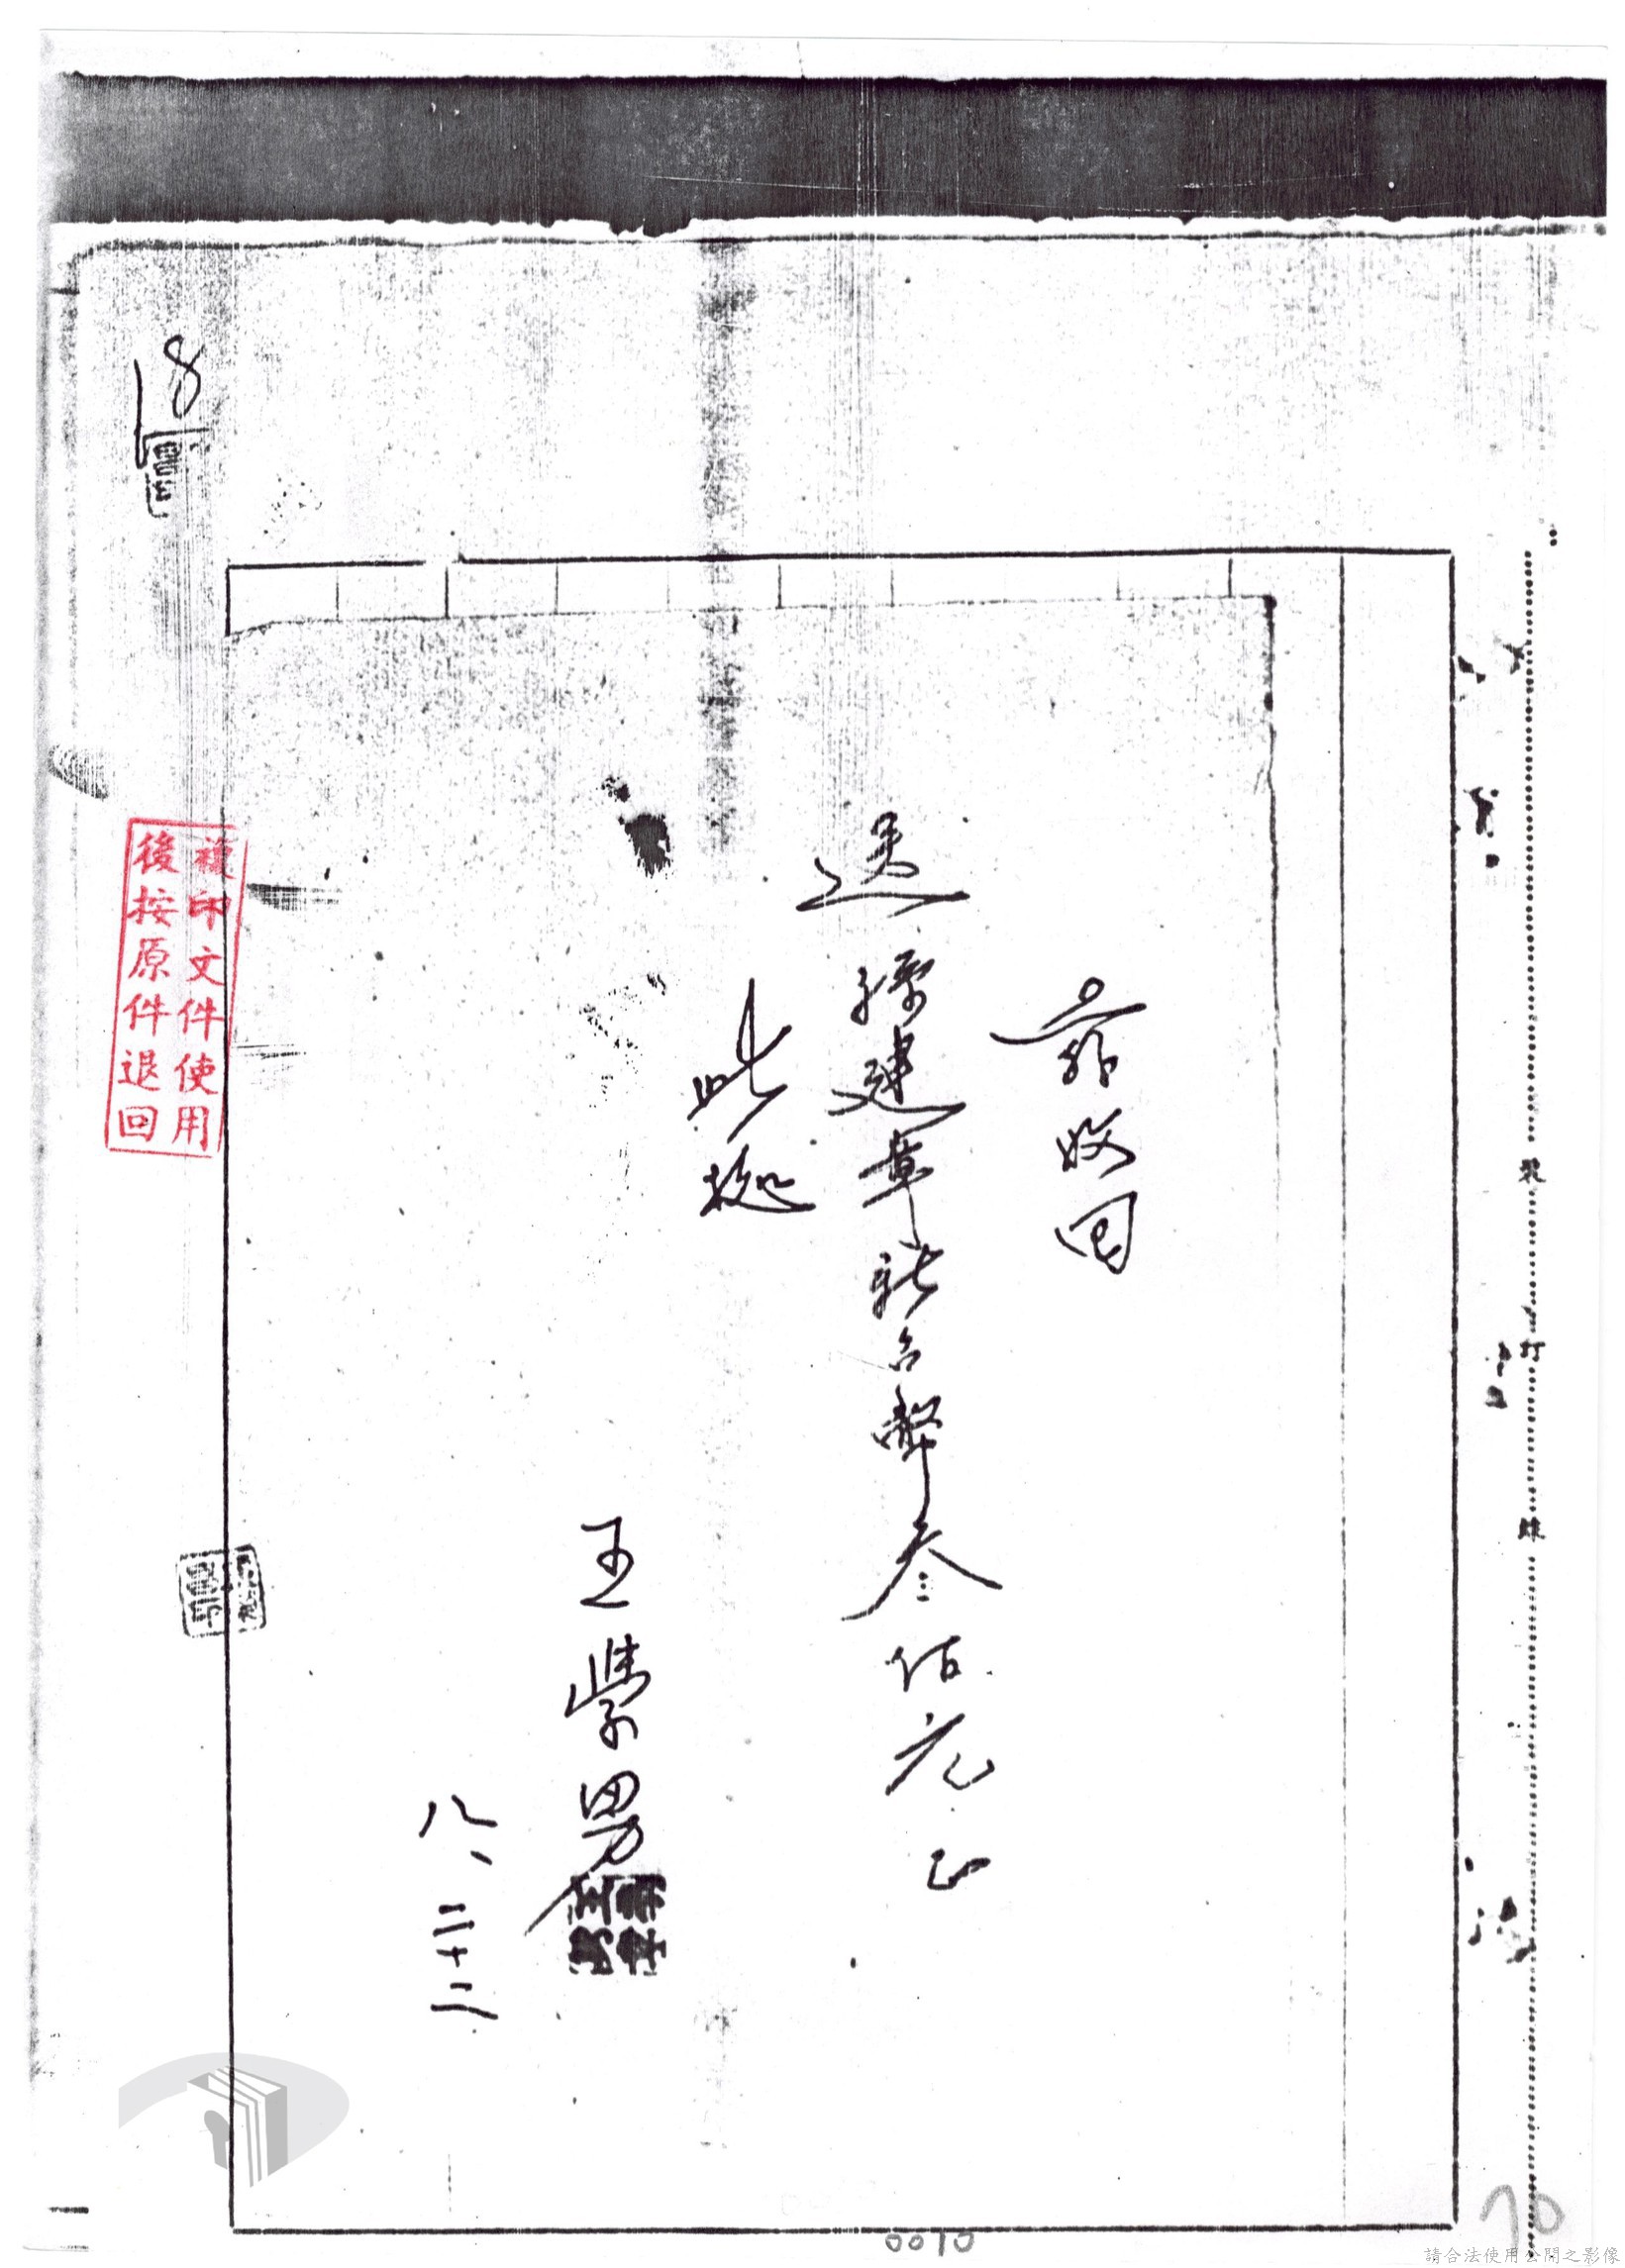 茲收回
送孫建章新台幣叁佰元正
此據
王紫男
八、二十二
18
複印文件使用
後按原件退回
裝
訂
線
0010
10
請合法使用公開之影像